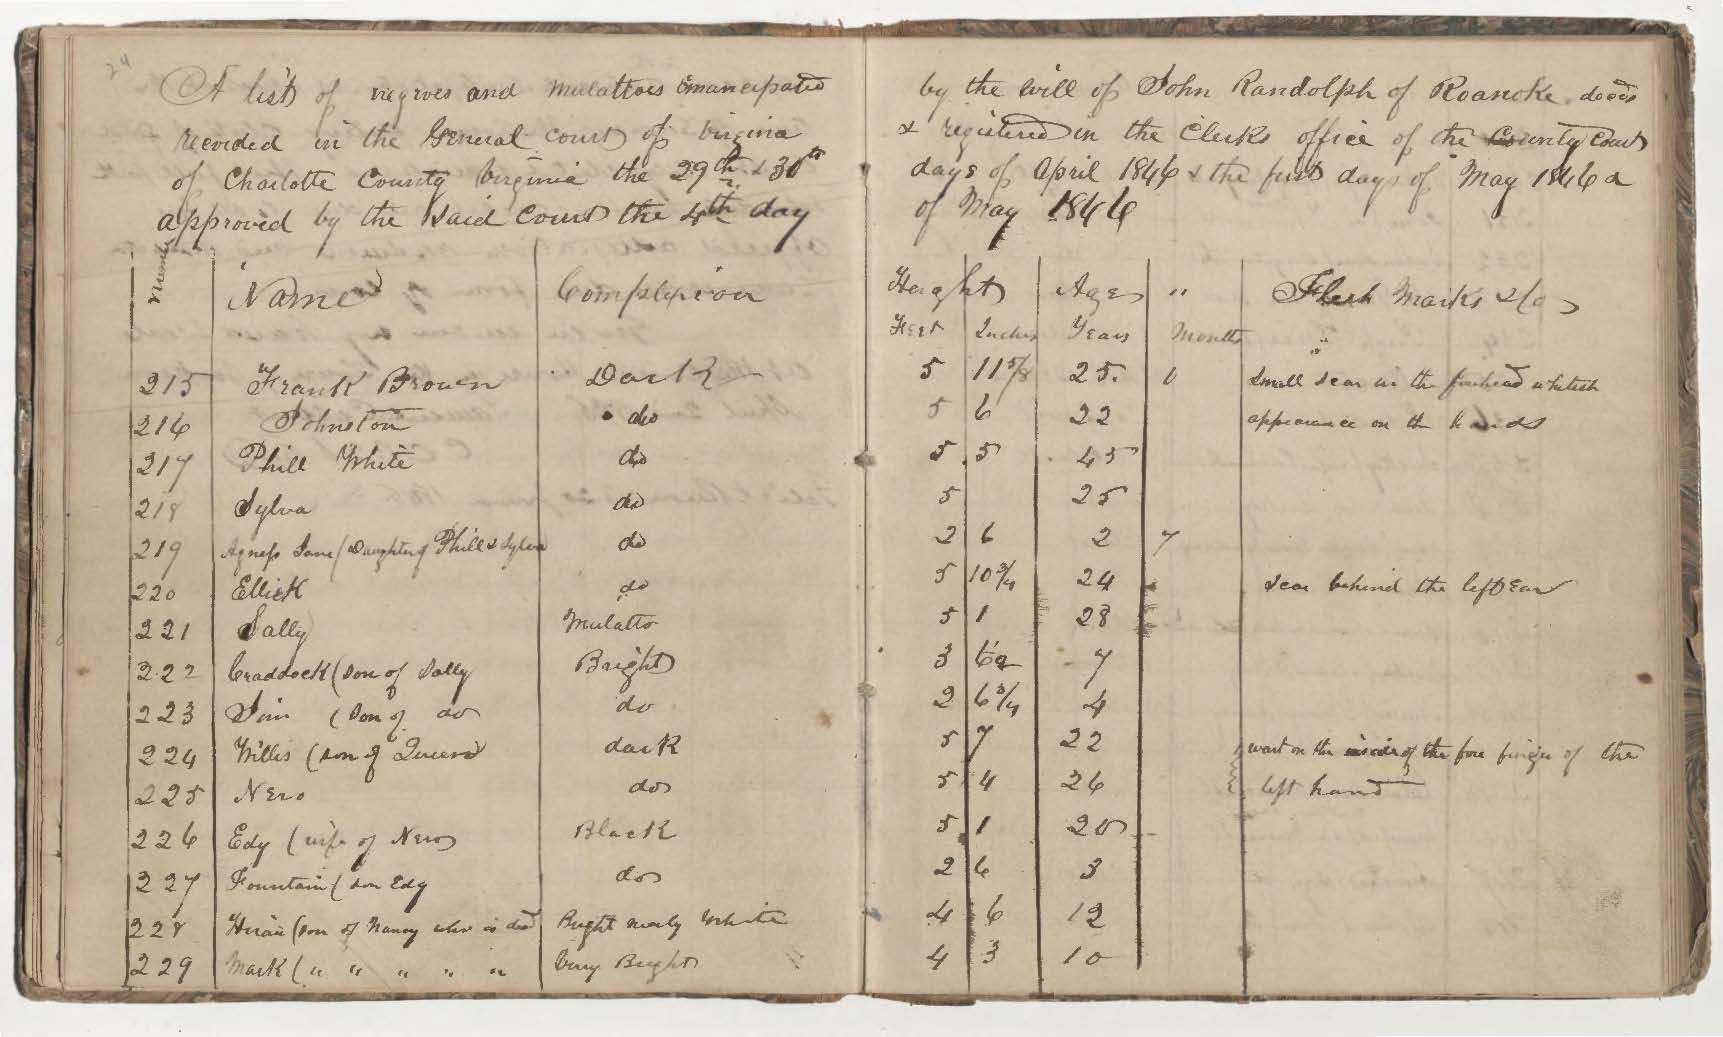 24
A list of negroes and mulattoes Emancipated by the will of John Randolph of Roanoke decd
recorded in the General court of Virginia & registered in the Clerks office of the County Court
of Charlotte County Virginia the 29th & 30th days of April 1846 & the first days of May 1846 &
approved by the said court the 4th day of May 1846
Number Name Complexion Height Age " Flesh Marks &c
Feet Inches Years Months "
215 Frank Brown Dark 5 11 5/8 25. small scar in the forehead whitish
216 Johnston do 5 6 22 appearance on the hands
217 Phill White do 5 5 45
218 Sylva do 5 25
219 Agness Jane (Daughter of Phill & Sylva do 2 6 2 7
220 Ellick do 5 10 3/4 24 scar behind the left Ear
221 Sally Mulatto 5 1 28
222 Craddock (son of Sally Bright 3 7
223 Sim (son of do do 2 6 3/4 4
224 Willis (son of Queen dark 5 7 22 wart on the inside of the fore finger of the
225 Nero do 5 4 26 left hand
226 Edy (wife of Nero Black 5 1 20
227 Fountain (son Edy do 2 6 3
228 Hiram (son of Nancy who is dead Bright nearly White 4 6 12
229 Mark (" " " " " Very Bright 4 3 10